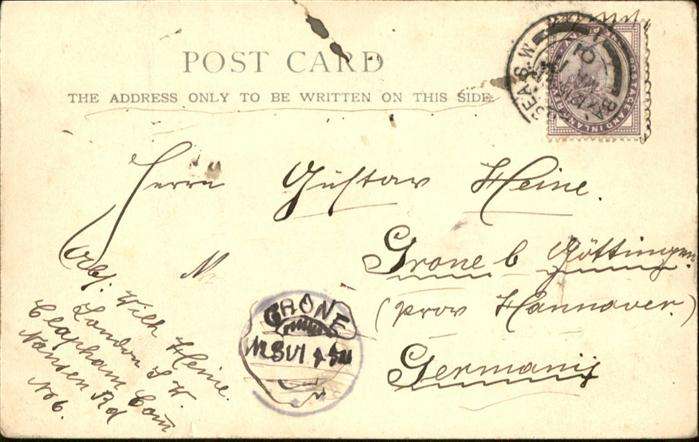 POST CARD
THE ADDRESS ONLY TO BE WRITTEN ON THIS SIDE.
Herrn Gustav Heine.
Grone b Göttingen.
(prov Hannover)
Germany
Abs: Wilh Heine.
London S W.
Clapham Com
Nansen Rd
No 6.
GRONE